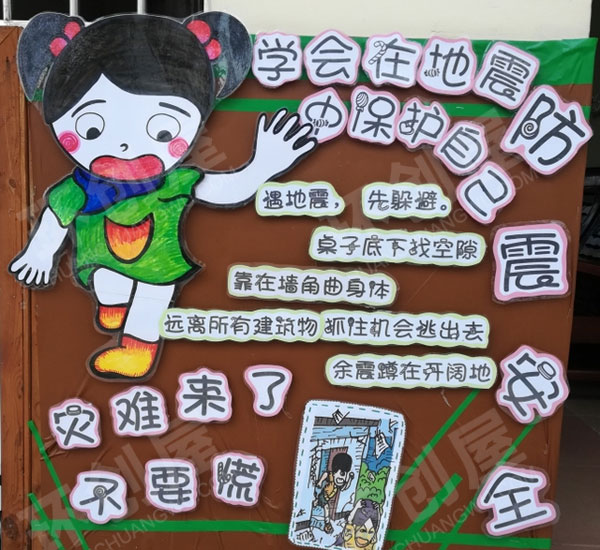 学会在地震
中保护自己
防震安全
遇地震，先躲避。
桌子底下找空隙
靠在墙角曲身体
远离所有建筑物 抓住机会逃出去
余震蹲在开阔地
灾难来了
不要慌